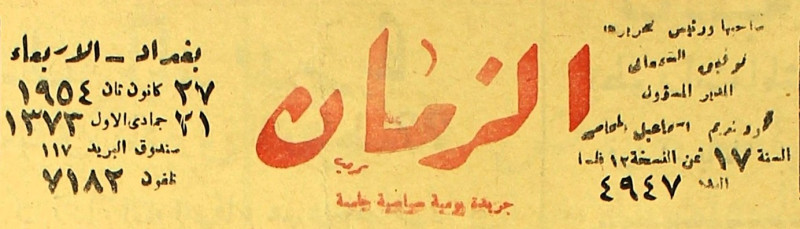 صاحبها ورئيس تحريرها
توفيق السمعاني
المدير المسؤول
محمود نديم اسماعيل المحامي
السنة ١٧ ثمن النسخة ١٢ فلسا
العدد ٤٩٤٧
الزمان
جريدة يومية سياسية جامعة
بغداد - الاربعاء
٢٧ كانون ثان ١٩٥٤
٢١ جمادى الاول ١٣٧٣
صندوق البريد ١١٧
تلفون ٧١٨٢